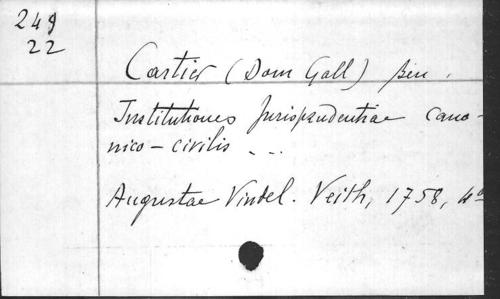 249
22
Cartier (Dom Gall) sen.
Institutiones Jurisprudentiae cano-
nico-civilis ...
Augustae Vindel. Veith, 1758, 4°